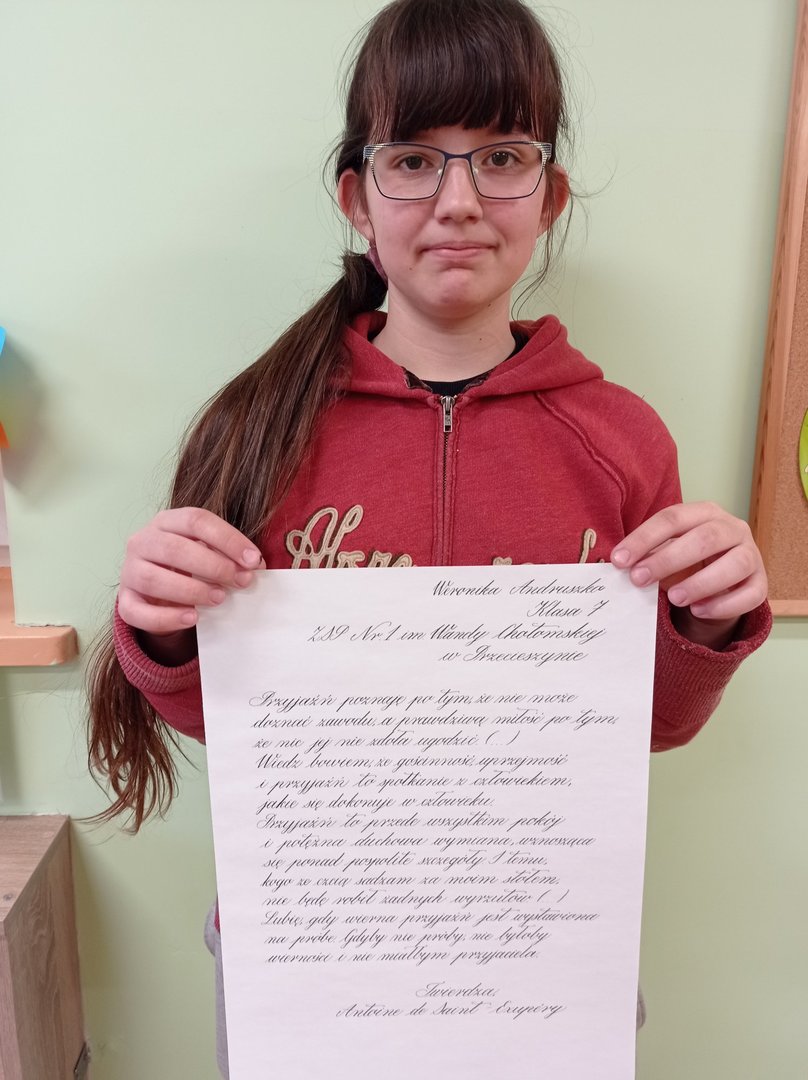 Weronika Andruszko
Klasa 7
ZSP Nr. 1 im Wandy Chotomskiej
w Przecieszynie
Przyjaźń poznaję po tym, że nie może
doznać zawodu, a prawdziwą miłość po tym,
że nie jej nie zdoła ugodzić. (...)
Wiedz bowiem, że gościnność, uprzejmość
i przyjaźń to spotkanie z człowiekiem,
jakie się dokonuje w człowieku.
Przyjaźń to przede wszystkim pokój
i potężna duchowa wymiana, wznosząca
się ponad pospolite szczegóły I temu,
kogo ze czcią sadzam za moim stołem,
nie będę robił żadnych wyrzutów (...)
Lubię, gdy wierna przyjaźń jest wystawiona
na próbę. Gdyby nie próby, nie byłoby
wierności i nie miałbym przyjaciela.
Twierdza,
Antoine de Saint-Exupéry